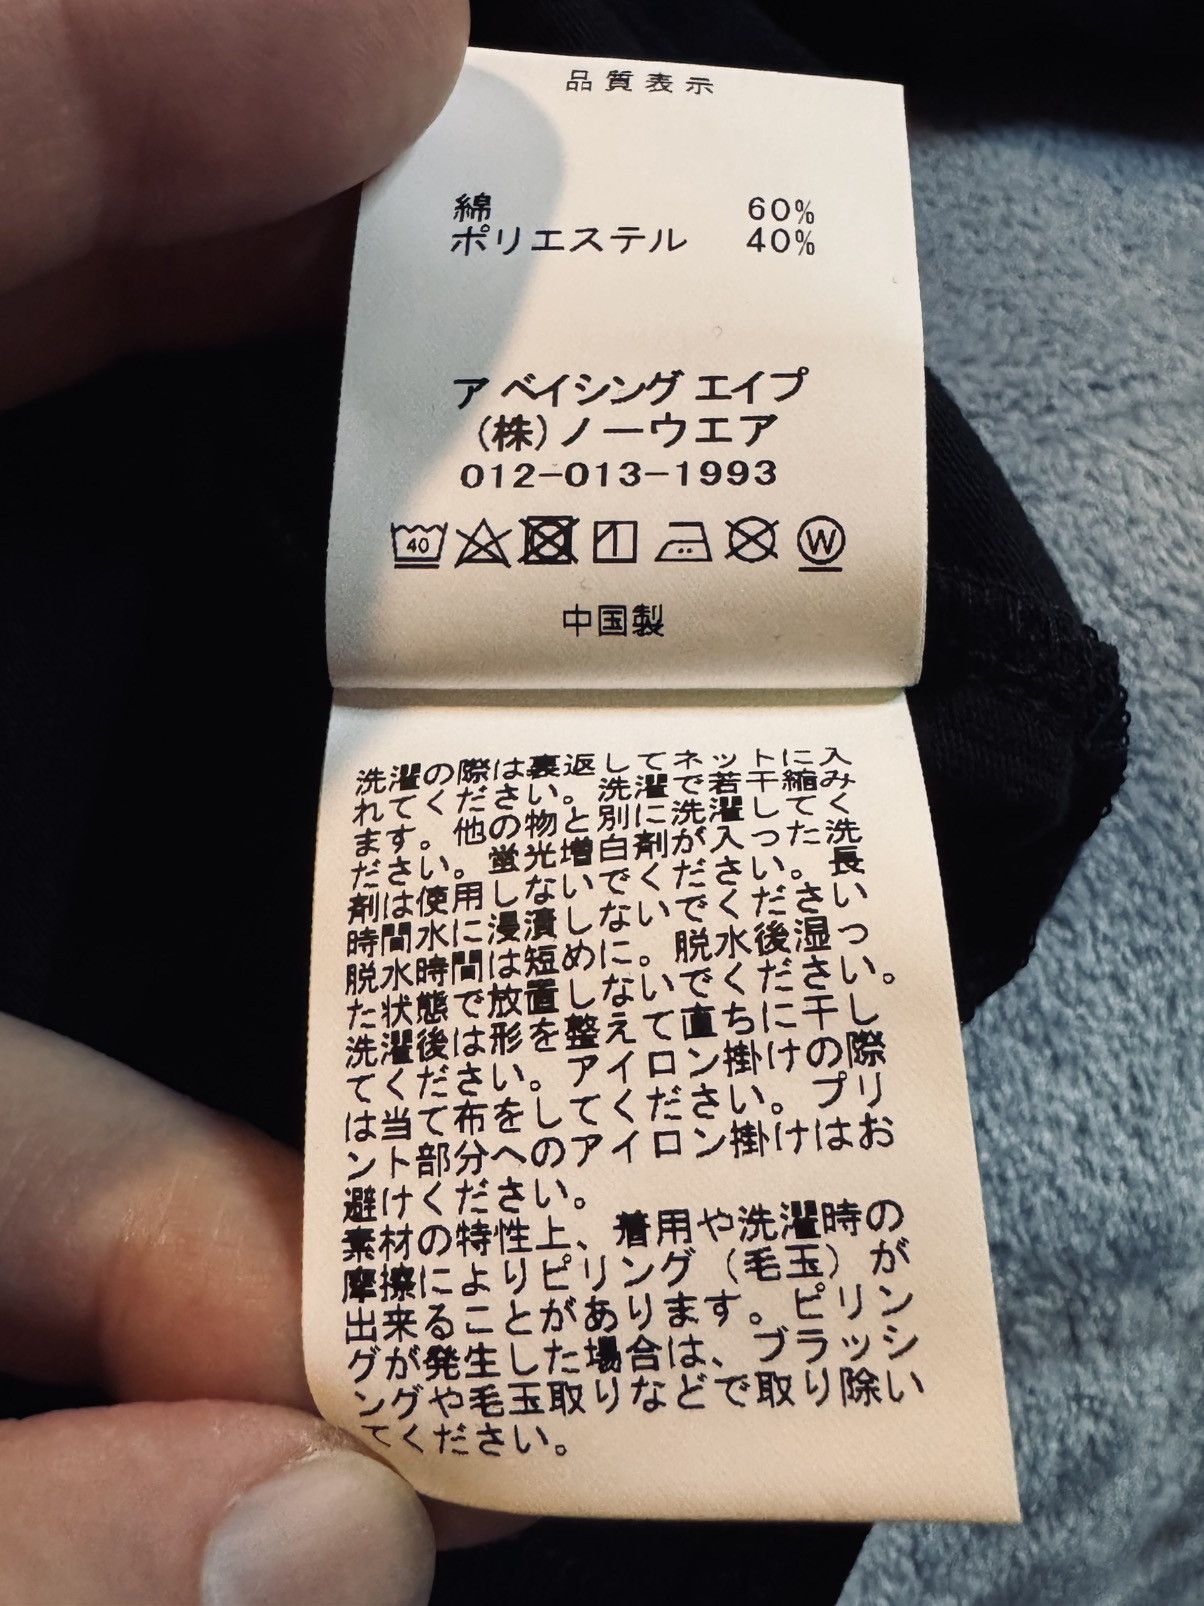 品質表示
綿 60%
ポリエステル 40%
ア ベイシング エイプ
(株)ノーウエア
012-013-1993
40
W
中国製
洗濯の際は裏返してネットに入
れてください。洗濯で若干縮み
ます。他の物と別に洗濯してく
ださい。蛍光増白剤が入った洗
剤は使用しないでください。長
時間水に浸漬しないでください
脱水時間は短めに。脱水後湿っ
た状態で放置しないでください。
洗濯後は形を整えて直ちに干し
てください。アイロン掛けの際
は当て布をしてください。プリ
ント部分へのアイロン掛けはお
避けください。
素材の特性上、着用や洗濯時の
摩擦によりピリング(毛玉)が
出来ることがあります。ピリン
グが発生した場合は、ブラッシ
ングや毛玉取りなどで取り除い
てください。